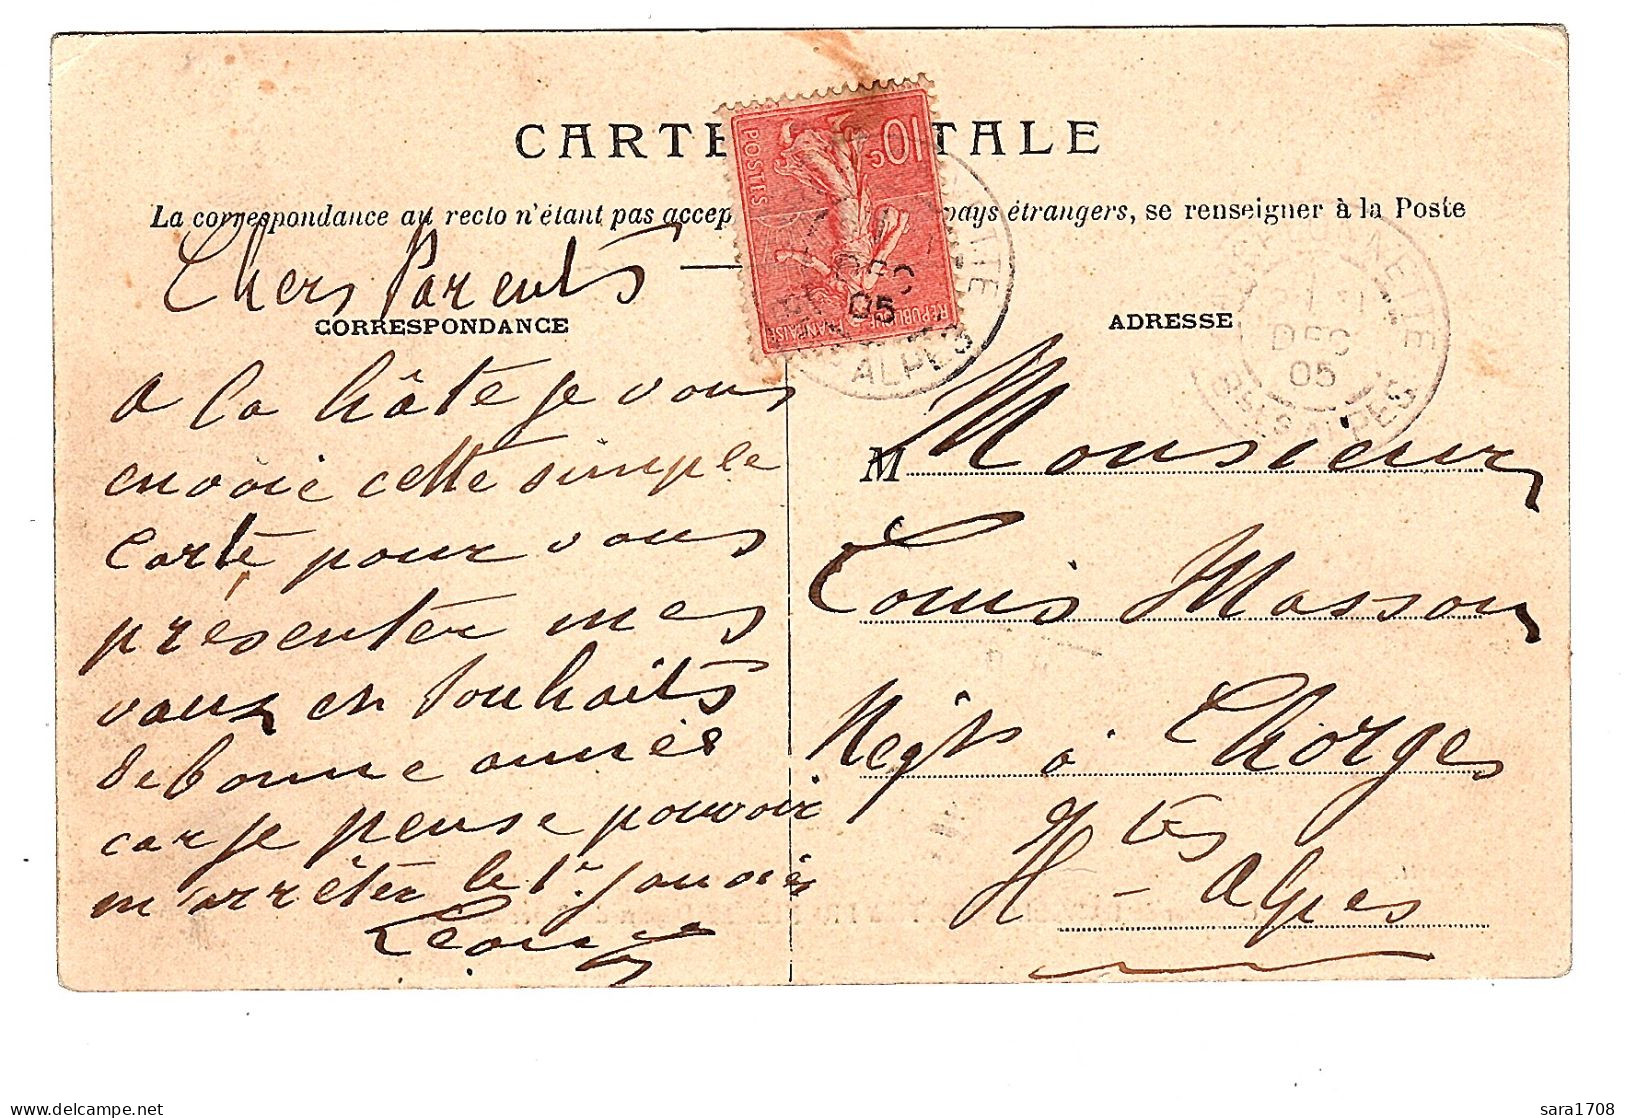 CARTE TALE
La correspondance au recto n'étant pas accep pays étrangers, se renseigner à la Poste
Chers Parents —
CORRESPONDANCE
a la hâte je vous
envoie cette simple
carte pour vous
présenter mes
vœux en souhaits
de bonne année
car je pense pouvoir
en arrêter le 1er janvier
Léon
POSTES
10c
REPUBLIQUE FRANÇAISE
DEC
05
ALPES
ADRESSE
DEC
05
BSES ALPES
M Monsieur
Louis Masson
Negt à Chorges
Htes
H - Alpes
delcampe.net
sara1708